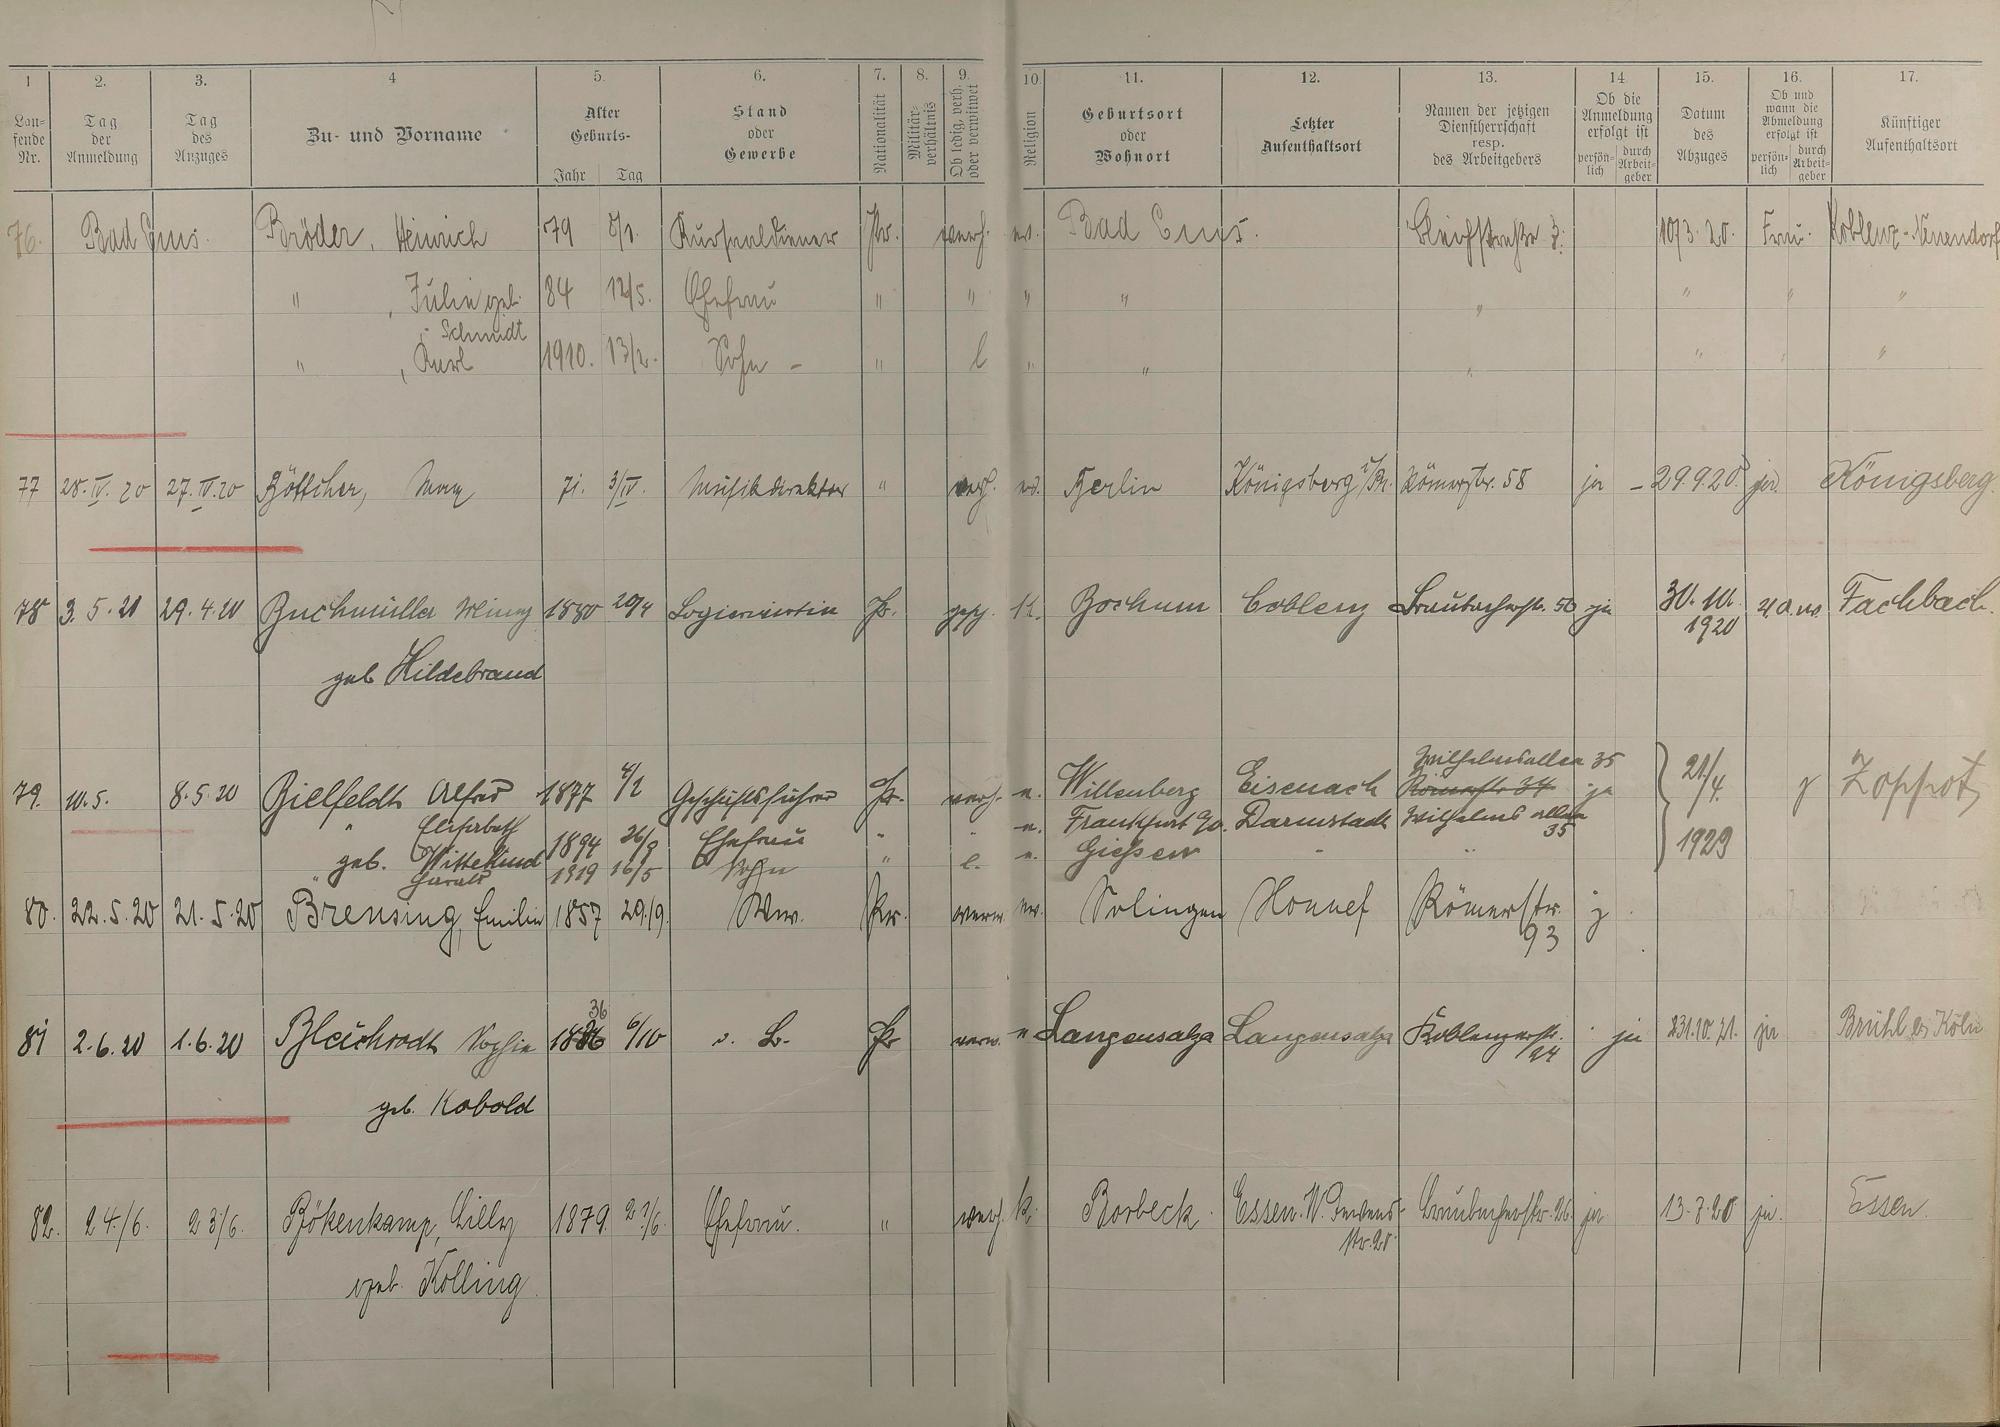 1 2. 3. 4 5. 6. 7. 8. 9. 10. 11. 12. 13. 14 15. 16. 17.
Lau-
fende
Nr.
Tag
der
Anmeldung
Tag
des
Anzuges
Zu- und Vorname
Alter
Geburts-
Jahr Tag
Stand
oder
Gewerbe
Nationalität
Militär-
verhältnis
Ob ledig, verh.
oder verwitwet
Religion
Geburtsort
oder
Wohnort
Letzter
Aufenthaltsort
Namen der jetzigen
Dienstherrschaft
resp.
des Arbeitgebers
Ob die
Anmeldung
erfolgt ist
persön-
lich
durch
Arbeit-
geber
Datum
des
Abzuges
Ob und
wann die
Abmeldung
erfolgt ist
persön-
lich
durch
Arbeit-
geber
Künftiger
Aufenthaltsort
76. Bad Ems. Bröder, Heinrich 79 Kursaaldiener Pr. verh. ev. Bad Ems. Bleichstraße 3. 20. Frau. Koblenz-Neuendorf
" , Julie geb. 84 12/5. Ehefrau " " " " " " " "
Schmidt
" , Karl 1910. 13/2. Sohn - " l " " " " " "
77 28.IV.20 27.IV.20 Böttcher, Max 71. 3/IV. Musikdirektor " verh. ev. Berlin Königsberg i/Pr. Römerstr. 58 ja - 29.9.20. ja. Königsberg.
78 3.5.20 29.4.20 Buchmüller Minny 1880 20/4 Logierwirtin Pr. gesch. k. Bochum Coblenz Braubacherstr. 50 ja 30.10. Fachbach.
1920
geb Hildebrand
79. 10.5. 8.5.20 Bielfeldt Alfred 1877 4/2 Geschäftsführer Pr. verh. e. Wittenberg Eisenach Wilhelmsallee 35
Römerstr 34 ja 21/4. Zoppot
" Elisabeth 1894 26/9 Ehefrau " " e. Frankfurt a/O. Darmstadt Wilhelmsallee
35 1923
geb. Wittekind
" Harald 1919 16/5 Sohn " l. e. Giessen " "
80. 22.5.20 21.5.20 Brensing, Emilie 1857 29./9. Ww. Pr. verw. ev. Solingen Honnef Römerstr. j
93
81 2.6.20 1.6.20 Bleichrodt Sophie 1836 6/10 o. B. Pr verw. e Langensalza Langensalza Koblenzerstr. ja 31.10.21. ja Brühl b. Köln
24
geb. Kobold
82. 24./6. 23./6. Bökenkamp, Cilly 1879. Ehefrau. " verh. k. Borbeck. Essen.W. Braubacherstr. 26. ja 13.7.20 ja. Essen.
str. 20.
geb. Kolling.